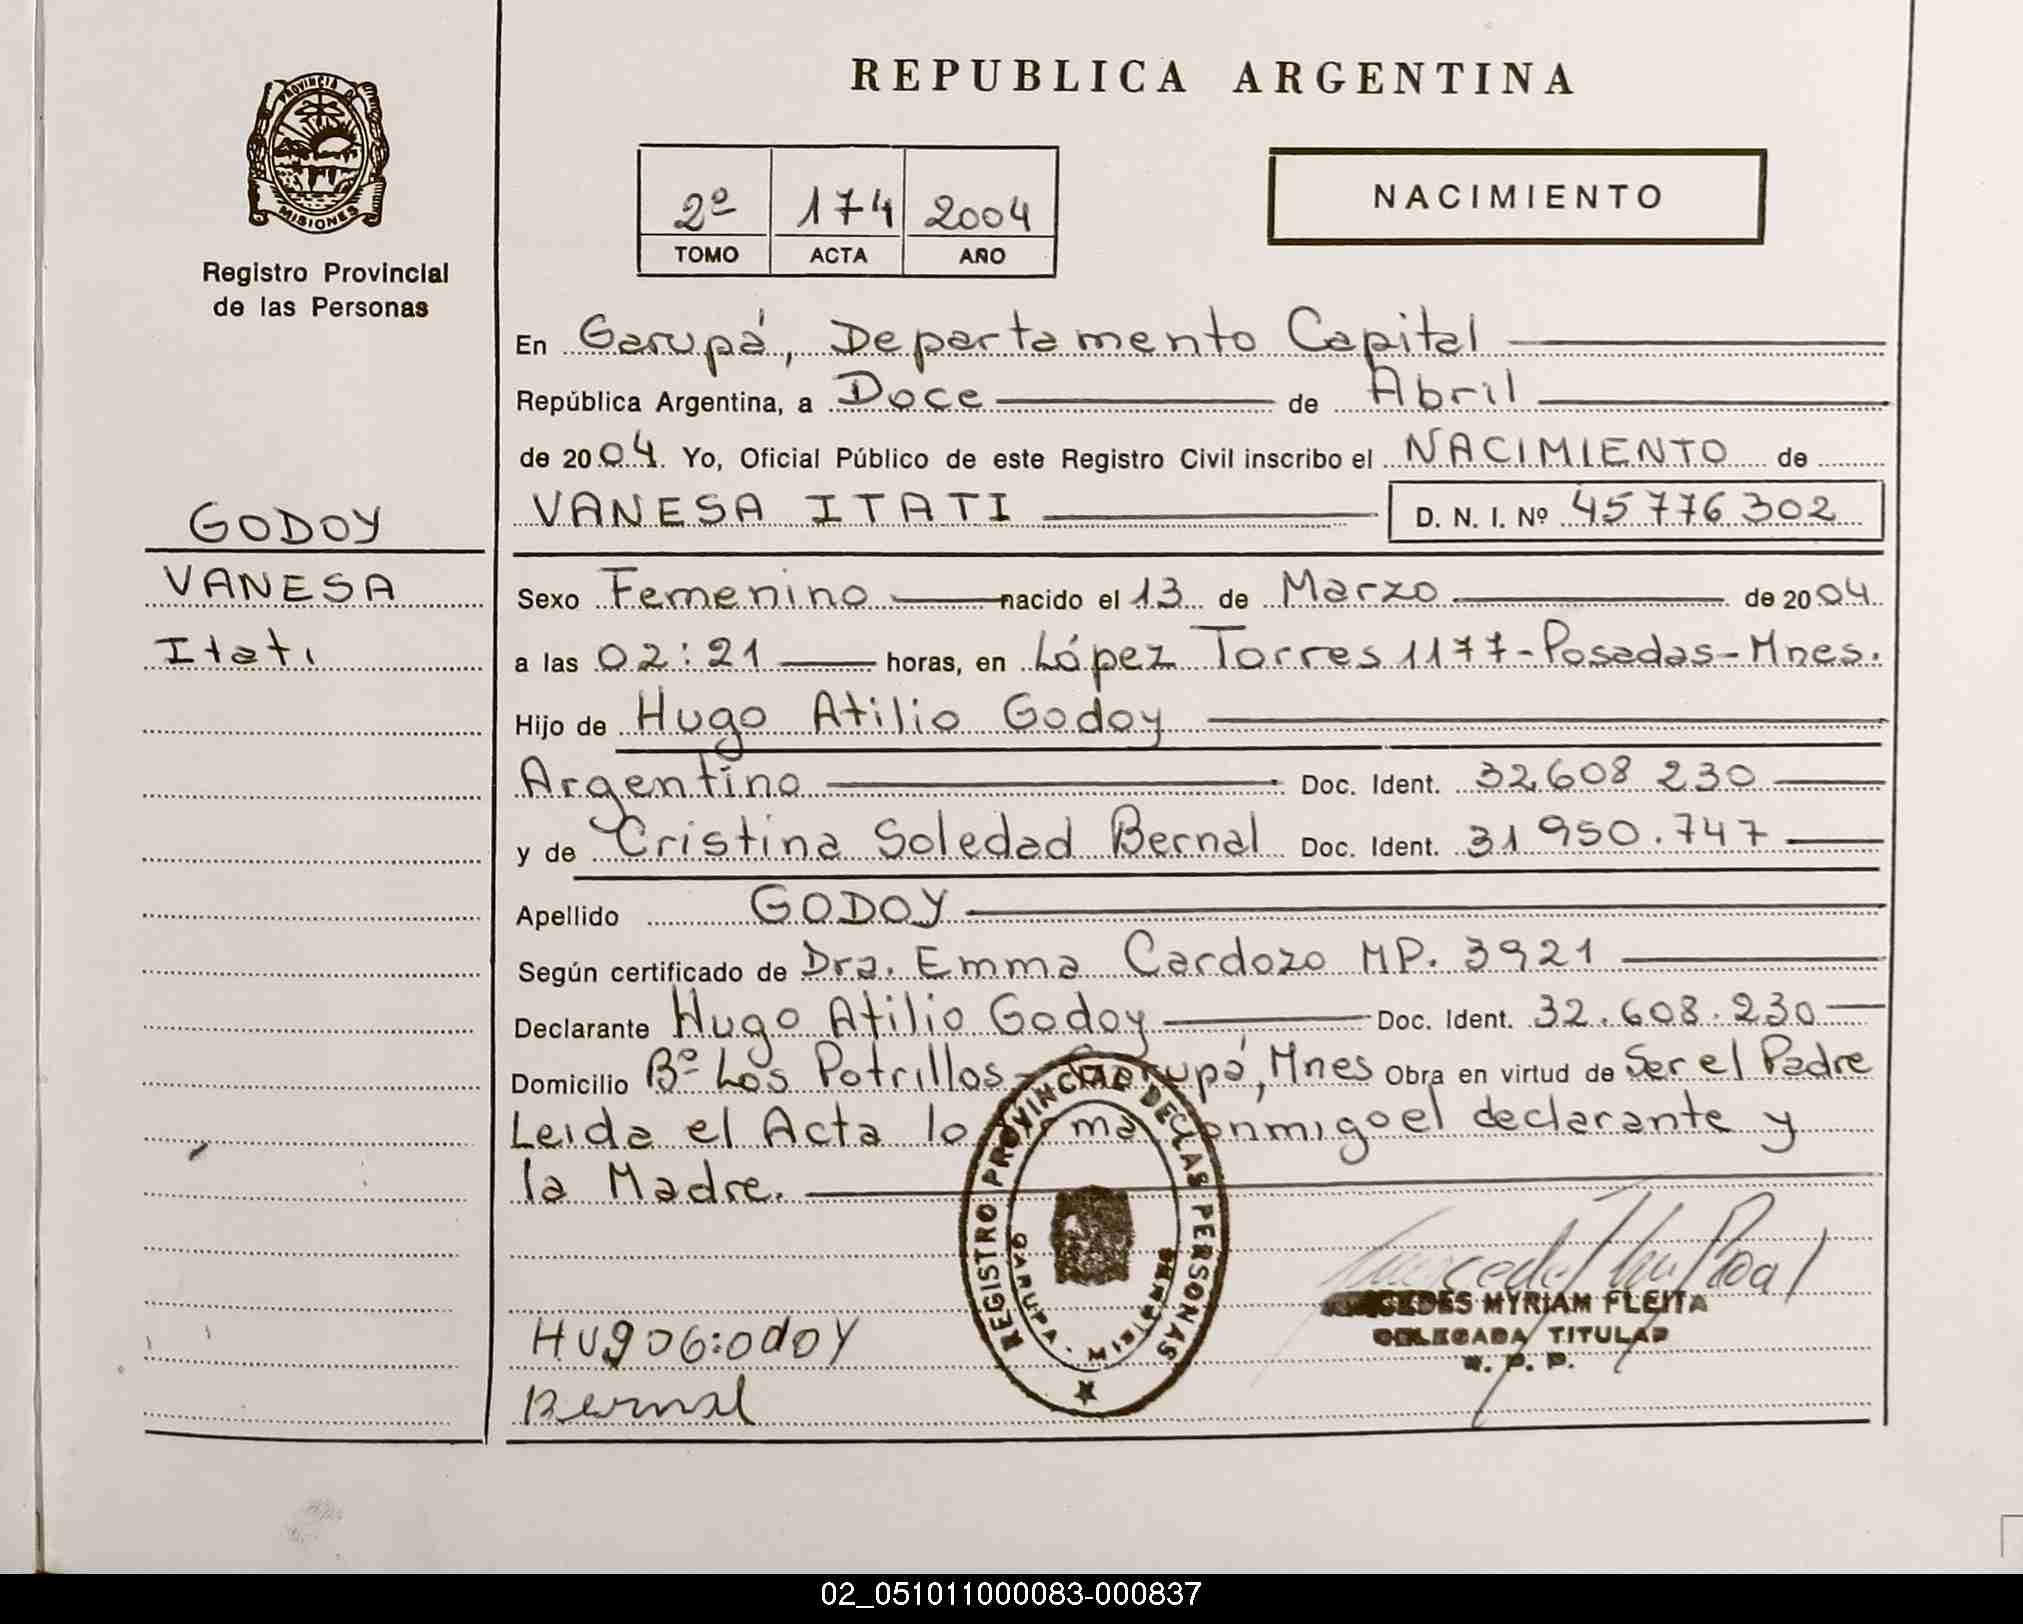 PROVINCIA DE
MISIONES
Registro Provincial
de las Personas
GODOY
VANESA
Itati
REPUBLICA ARGENTINA
2º 174 2004
TOMO ACTA AÑO
NACIMIENTO
En Garupá, Departamento Capital
República Argentina, a Doce de Abril
de 2004. Yo, Oficial Público de este Registro Civil inscribo el NACIMIENTO de
VANESA ITATI D. N. I. Nº 45776302
Sexo Femenino nacido el 13 de Marzo de 2004
a las 02:21 horas, en López Torres 1177-Posadas-Mnes.
Hijo de Hugo Atilio Godoy
Argentino Doc. Ident. 32.608 230
y de Cristina Soledad Bernal Doc. Ident. 31 950.747
Apellido GODOY
Según certificado de Dra. Emma Cardozo MP. 3921
Declarante Hugo Atilio Godoy Doc. Ident. 32.608.230
Domicilio Bº Los Potrillos - Garupá, Mnes Obra en virtud de Ser el Padre
Leida el Acta lo conmigo el declarante y
la Madre.
REGISTRO PROVINCIAL DE LAS PERSONAS
GARUPA
Hugo Godoy
Bernal
MYRIAM FLEITA
DELEGADA TITULAR
R. P. P.
02_051011000083-000837